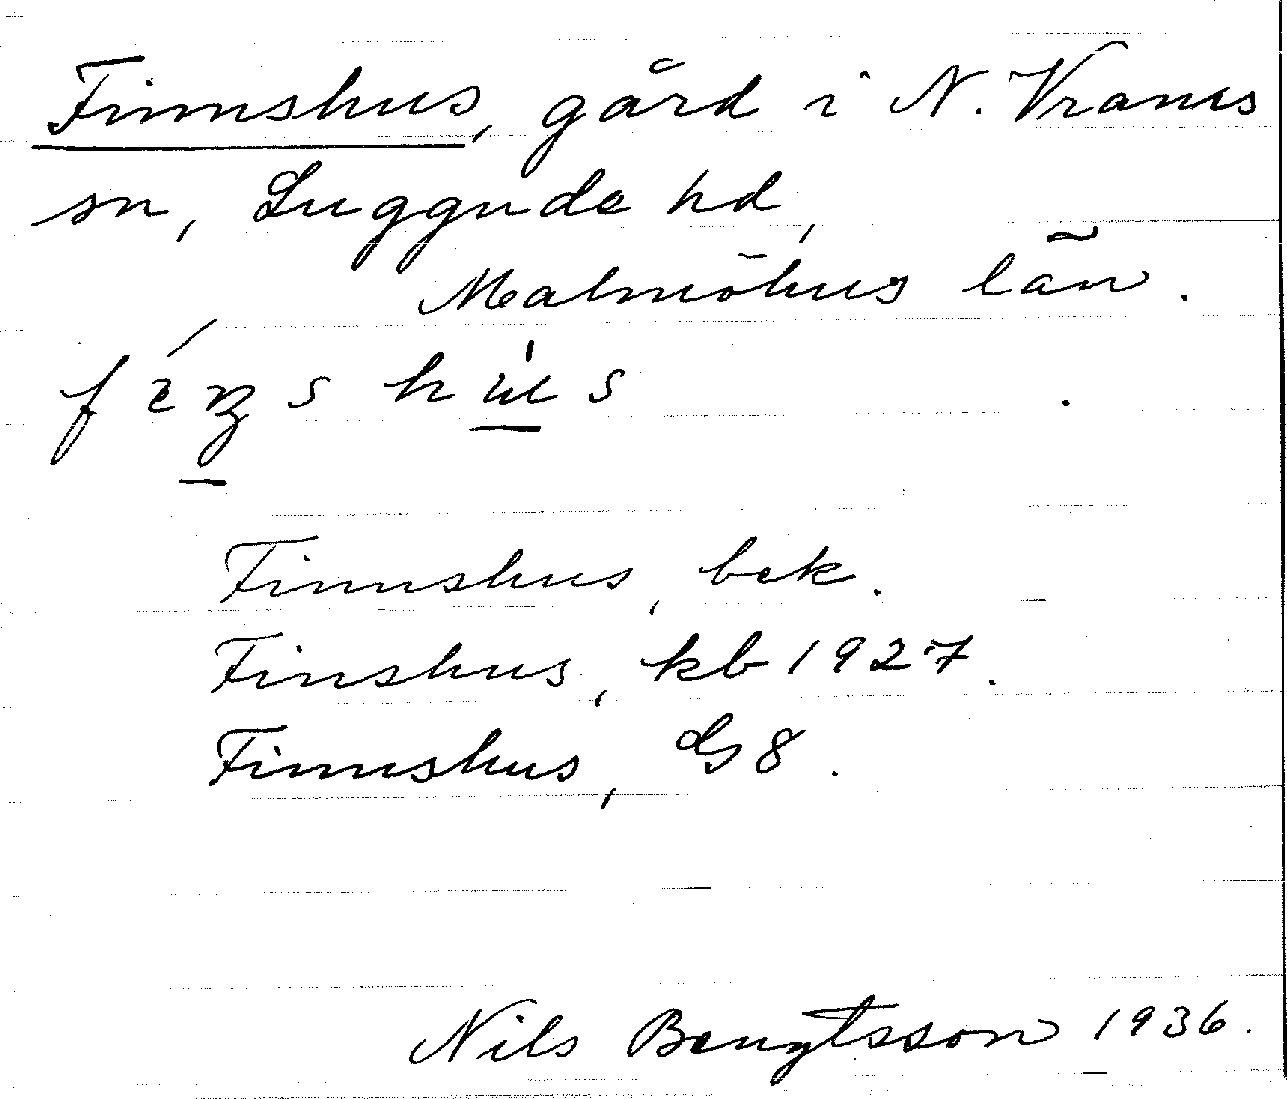 Finnshus, gård i N. Vrams
sn, Luggude hd,
Malmöhus län.
Finnshus, bek.
Finshus, kb 1927.
Finnshus, GS 8.
Nils Bengtsson 1936.